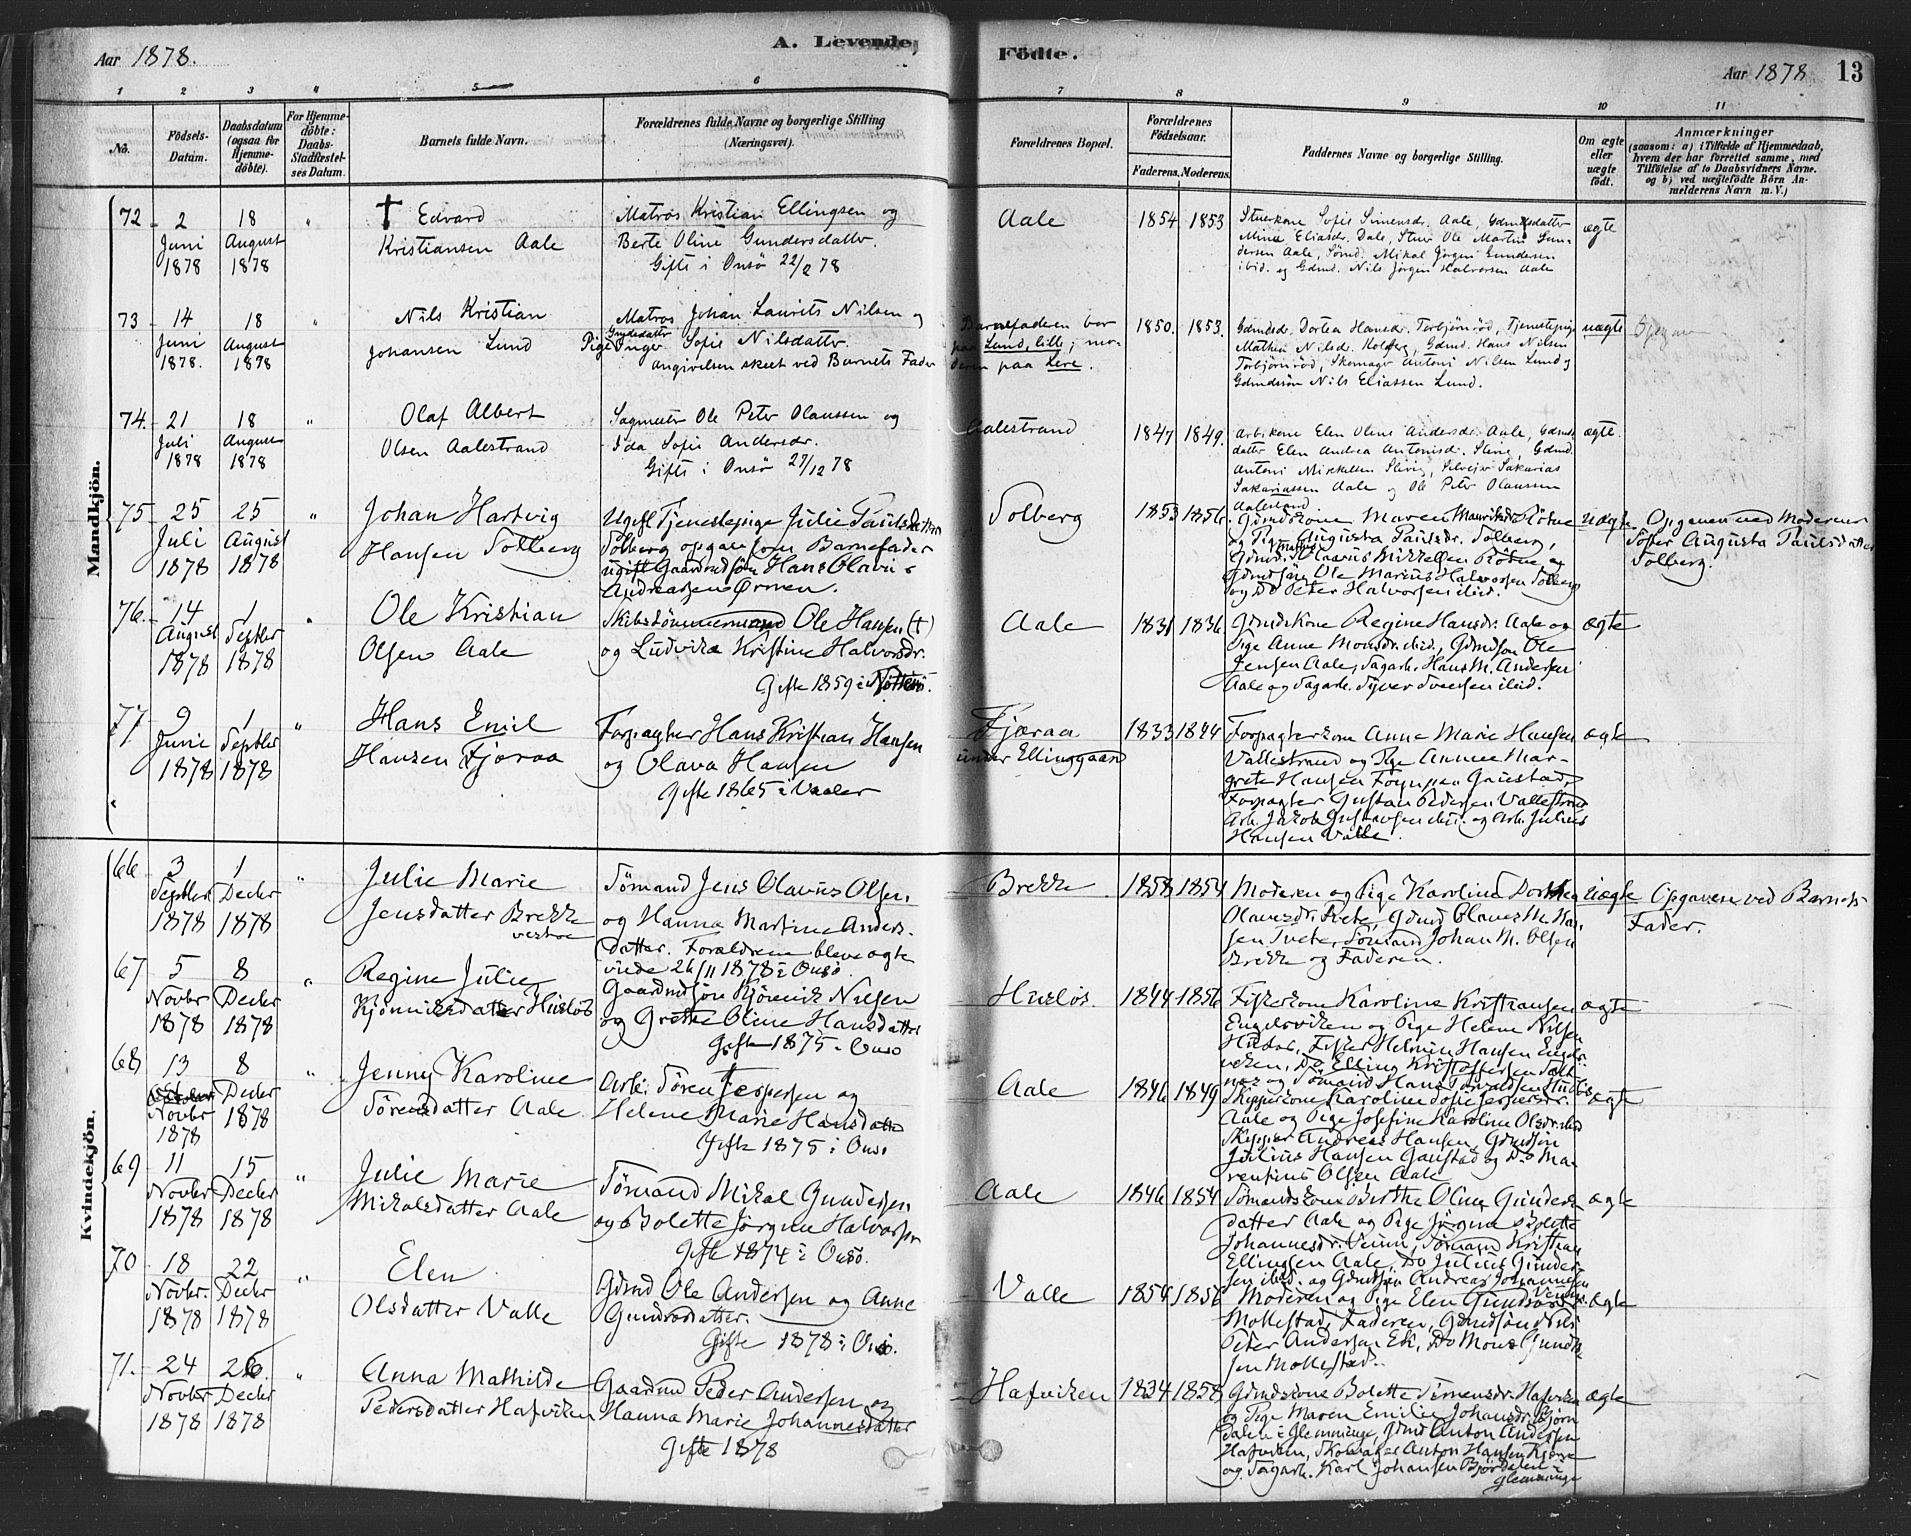 Aar 1878.
A. Levende
Födte.
Aar 1878
13
1
2
3
4
5
6
7
8
9
10
11
No.
Födsels-
Datum.
Daabsdatum
(ogsaa for
Hjemme-
döbte).
For Hjemme-
döbte:
Daabs-
Stadfæstel-
ses Datum.
Barnets fulde Navn.
Forældrenes fulde Navne og borgerlige Stilling
(Næringsvei).
Forældrenes Bopæl.
Forældrenes
Födselsaar.
Faderens.
Moderens.
Faddernes Navne og borgerlige Stilling.
Om ægte
eller
uægte
født.
Anmærkninger
(saasom: a) i Tilfælde af Hjemmedaab,
hvem der har forrettet samme, med
Tilföielse af to Daabsvidners Navne.
og b) ved uægtefödte Börn An-
melderens Navn m. V.)
Mandkjön.
72
2
Juni
1878
18
August
1878
"
† Edvard
Kristiansen Aale
Matros Kristian Ellingsen og
Berte Oline Gundersdattr.
Gifte i Onsö 22/2 78
Aale
1854
1853
Sturkone Sofie Simensdr. Aale, Gdmdsdattr
Mina Eliasdr. Dale, Stur Ole Martin Gun-
dersen Aale, Sömd. Mikal Jörgen Gundersen
ibid. og Gdmd. Nils Jörgen Halvorsen Aale
ægte
73
14
Juni
1878.
18
August
1878
"
Nils Kristian
Johansen Lund
Matros Johan Laurits Nilsen og
Pige Inger Sofie Nilsdattr.
Angivelsen skeet ved Barnets Fader
Barnefaderen bor
paa Lund, lille; mo-
deren paa Lere.
1850.
1853.
Gdmdsdr. Dortea Hansdr. Torbjörnröd, Tjenestepige
Mathea Nilsdr. Gdmd. Hans Nilsen
Torbjörnröd, Skomagr Antoni Nilsen Lund og
Gdmdssön Nils Eliassen Lund.
uægte
74.
21
Juli
1878
18
August
1878
"
Olaf Albert
Olsen Aalestrand
Sagmester Ole Peter Olaussen og
Ida Sofie Andersdr.
Gifte i Onsö 27/12 78
Aalestrand
1847
1849.
Arbkone Elen Oline Andersdr. Aale, Gdmds-
datter Elen Andrea Antonisdr. Slevig, Gdmd.
Antoni Mikkelsen Slevig, Selveier Sakarias
Sakariassen Aale og Ole Peter Olaussen
Aalestrand
ægte.
75
25
Juli
1878
25
August
1878
"
Johan Hartvig
Hansen Solberg
Ugift Tjenestepige Julie Paulsdatter
Solberg opgav som Barnefader
ugift Gaardmdsön Hans Olavus
Andreassen Örmen.
Solberg
1853
1856.
Gdmdskone Maren Mauritsdr Rötne
og Pige Augusta Paulsdr. Solberg,
Gdmd. Olavus Mikkelsen Rötne og
Gdmdsön Ole Marius Halvorsen Solberg
og Do Peter Halvorsen ibid.
Uægte.
Opgaven ved Moderens
Söster Augusta Paulsdatter
Solberg.
76.
14
August
1878
1
Septbr
1878
"
Ole Kristian
Olsen Aale
Skibstömmermand Ole Hansen (†)
og Ludvika Kristine Halvorsdr.
Gifte 1859 i
Aale
1831
1836
Gdmdskone Regine Hansdr. Aale og
Pige Anne Monsdr. ibid., Gdmdsön Ole
Jensen Aale, Sagarb. Hans M. Andersen
Aale og Sagarb. Syver Svensen ibid.
ægte
77.
9
Juni
1878
1
Septbr
1878
"
Hans Emil
Hansen Fjæraa
Forpagter Hans Kristian Hansen
og Olava Hansen
Gifte 1865 i Vaaler
Fjæraa
under Ellinggaard
1833
1844
Forpagterkone Anne Marie Hansen
Vallestrand og Pige Anne Mar-
grete Hansen Gaustad,
Forpagter Gustav Pedersen Vallestrand
Arb. Jakob Gustavsen ibid. og Arb. Julius
Hansen Valle.
ægte
Kvindekjön.
66
3
Septbr
1878
1
Decbr
1878
"
Julie Marie
Jensdatter Brekke
vestre
Sömand Jens Olavus Olsen
og Hanna Martine Anders-
datter. Forældrene bleve ægte-
viede 26/11 1878 i Onsö.
Brekke
1858
1854
Moderen og Pige Karolina Dorthea
Olavesdr. Tvete, Gdmd Olaves M. Han-
sen Tveter, Sömand Johan M. Olsen
Brekke og Faderen.
Uægte
Opgaven ved Barnets
Fader.
67
5
Novbr
1878
8
Decbr
1878
"
Regine Julie
Kjönniksdatter Huslös
Gaardmdsön Kjönnik Nilsen
og Grethe Oline Hansdatter
Gifte 1875 i Onsö
Huslös.
1844
1856
Fiskerkone Karoline Kristiansen
Engelsviken og Pige Helene Nilsen
Huslös, Fisker Helmin Hansen Engels-
viken, Do Elling Kristoffersen Salt-
næs og Sömand Hans Torvaldsen Huslös
ægte
68
13
Novbr
1878
8
Decbr
1878
"
Jenny Karoline
Sörensdatter Aale
Arb. Sören Jespersen og
Helene Marie Hansdattr
Gifte 1875 i Onsö
Aale
1846
1849
Skipperkone Karoline Sofie Jespersdr.
Aale og Pige Josefine Karoline Olsdr. ibid
Skipper Andreas Hansen, Gdmdsön
Julius Hansen Gaustad og Do Ma-
rentius Olsen Aale
ægte
69
11
Novbr
1878
15
Decbr
1878
"
Julie Marie
Mikalsdatter Aale
Sömand Mikal Gundersen
og Bolette Jörgine Halvorsen
Gifte 1874 i Onsö.
Aale
1846
1854
Sömandskone Berthe Oline Gunders-
datter Aale og Pige Jörgine Bolette
Johannesdr. Veum, Sömand Kristian
Ellingsen Aale, Do Julius Gunder-
sen ibid. og Gdmdsön Andreas Johannesen
Veum
ægte
70
18
Novbr.
1878
22
Decbr
1878
"
Elen
Olsdatter Valle
Gdmd Ole Andersen og Anne
Gundrosdatter.
Gifte 1878 i Onsö.
Valle
1854
1856
Moderen og Pige Elen
Mollestad, Faderen, Gdmdsön Nils
Peter Andersen Ek, Do Mons
sen Mollestad.
ægte
71.
24
Novbr
1878
26
Decbr
1878
"
Anna Mathilde
Pedersdatter Hafviken
Gaardmd Peder Andersen og
Hanna Marie Johannesdatter
Gifte 1878
Hafviken
1834
1858
Gdmdskone Bolette Simensdr. Hafviken
og Pige Maren Emilie Johansdr. Björn-
dalen i Glemminge, Gdmd Anton Andersen
Hafviken, Skomager Anton Hansen
og Sagarb. Karl Johansen Björndalen i
Glemminge
ægte